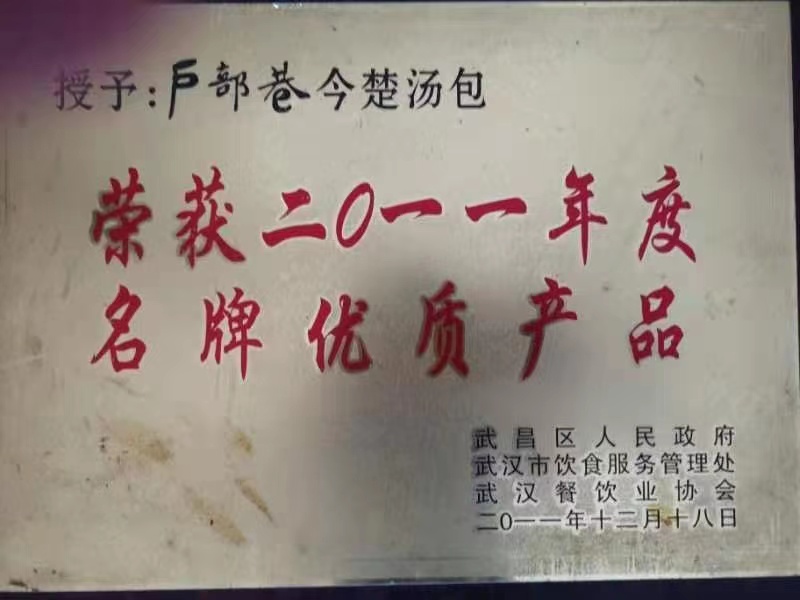 授予:户部巷今楚汤包
荣获二0一一年度
名牌优质产品
武昌区人民政府
武汉市饮食服务管理处
武汉餐饮业协会
二0一一年十二月十八日